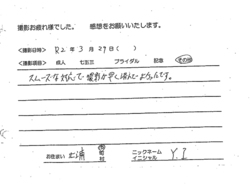 撮影お疲れ様でした。 感想をお願いいたします。
＜撮影日時＞ R2年 3月 29日（ ）
＜撮影項目＞ 成人 七五三 ブライダル 記念 その他
スムーズな対応で撮影が早く済んでよかったです。
お住まい 土浦 市 町 村 ニックネーム イニシャル Y.I